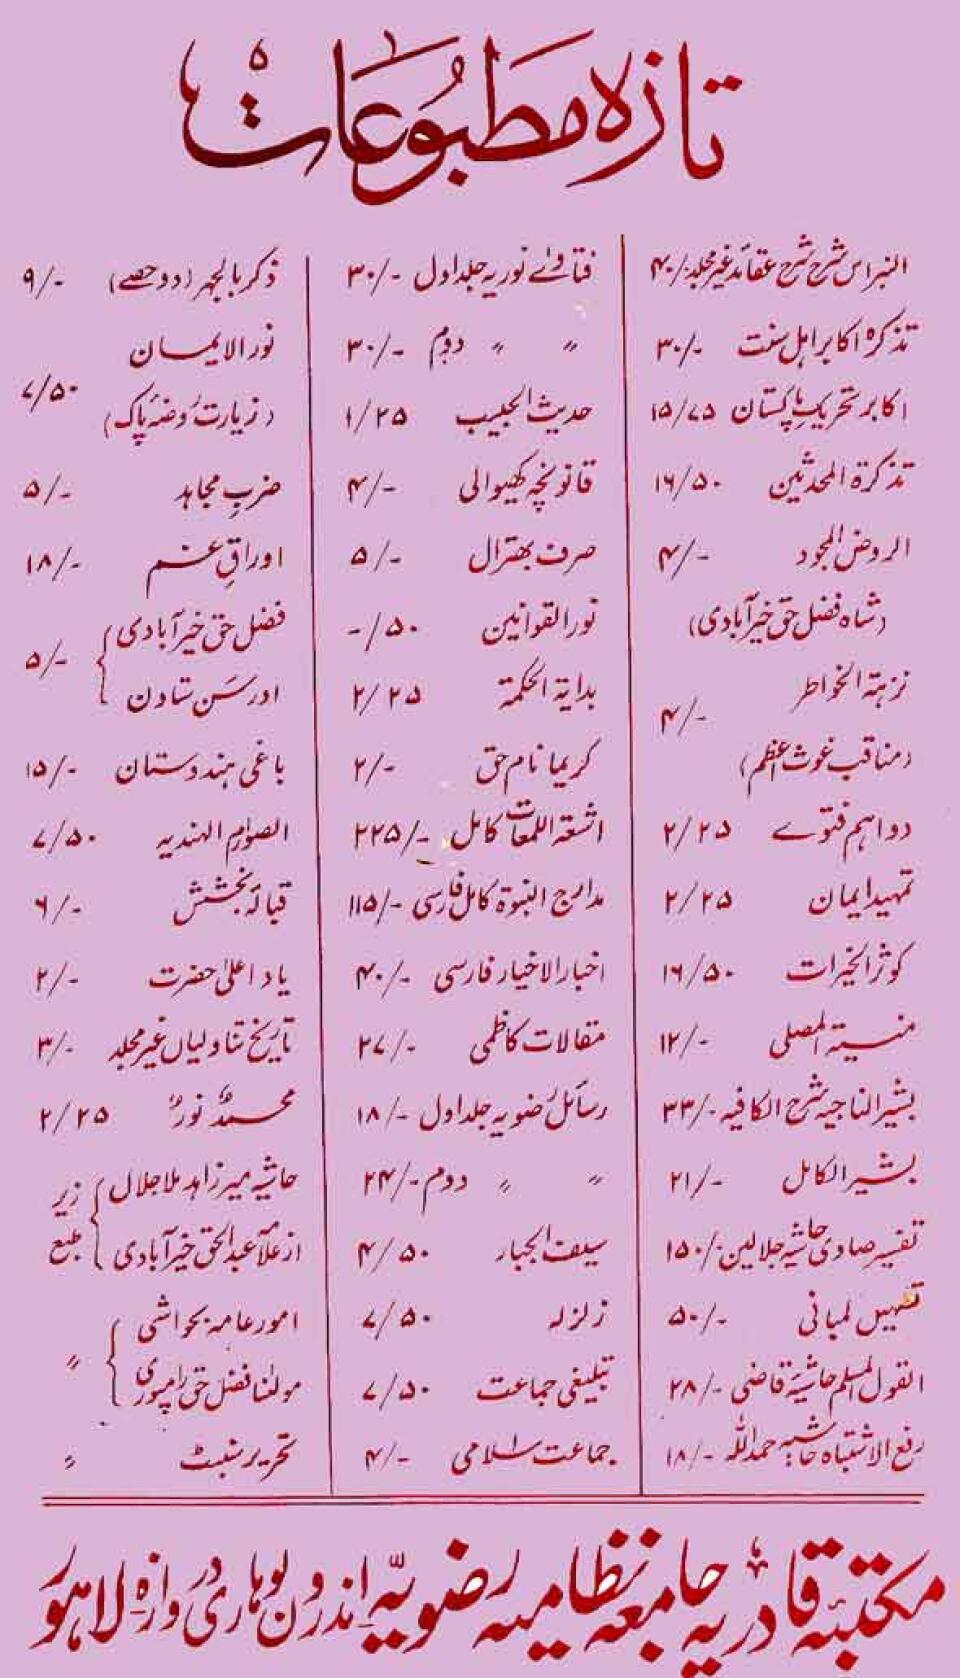 تازہ مطبوعات
النبراس شرح شرح عقائد غیر مجلد ۴۰/-
تذکرہ اکابر اہل سنت ۳۰/-
اکابر تحریک پاکستان ۱۵/۷۵
تذکرۃ المحدثین ۱۶/۵۰
الروض المجود ۴/-
(شاہ فضل حق خیرآبادی)
نزہتہ الخواطر
۴/-
(مناقب غوث اعظم)
دو اہم فتوے ۲/۲۵
تمہید ایمان ۲/۲۵
کوثر الخیرات ۱۶/۵۰
منیتہ المصلی ۱۲/-
بشیر الناجیہ شرح الکافیہ ۳۳/-
بشیر الکامل ۲۱/-
تفسیر صاوی حاشیہ جلالین ۱۵۰/-
تسہیل لمبانی ۵۰/-
القول المسلم حاشیہ قاضی ۲۸/-
رفع الاشتباہ حاشیہ حمداللہ ۱۸/-
فتاوٰے نوریہ جلد اول ۳۰/-
〃 〃 دوم ۳۰/-
حدیث الحبیب ۱/۲۵
قانونچہ کھیوالی ۴/-
صرف بھترال ۵/-
نور القوانین -/۵۰
بدایۃ الحکمۃ ۲/۲۵
کریما نام حق ۲/-
اشعۃ اللمعات کامل ۲۲۵/-
مدارج النبوۃ کامل فارسی ۱۱۵/-
اخبار الاخیار فارسی ۴۰/-
مقالات کاظمی ۲۷/-
رسائل رضویہ جلد اول ۱۸/-
〃 〃 دوم ۲۴/-
سیف الجبار ۴/۵۰
زلزلہ ۷/۵۰
تبلیغی جماعت ۷/۵۰
جماعت اسلامی ۴/-
ذکر بالجہر (دو حصے) ۹/-
نور الایمان
۷/۵۰
(زیارت روضہ پاک)
ضربِ مجاہد ۵/-
اوراقِ غم ۱۸/-
فضل حق خیرآبادی
۵/-
اور سن ستاون
باغی ہندوستان ۱۵/-
الصوارم الہندیہ ۷/۵۰
قبالۂ بخشش ۶/-
یاد اعلیٰ حضرت ۲/-
تاریخ تناولیاں غیر مجلد ۳/-
محمد نور ۲/۲۵
حاشیہ میرزاہد ملا جلال
زیر طبع
از علامہ عبدالحق خیرآبادی
امور عامہ بحواشی
〃
مولٰنا فضل حق رامپوری
تحریر سنبٹ 〃
مکتبہ قادریہ جامعہ نظامیہ رضویہ اندرون لوہاری دروازہ لاہور